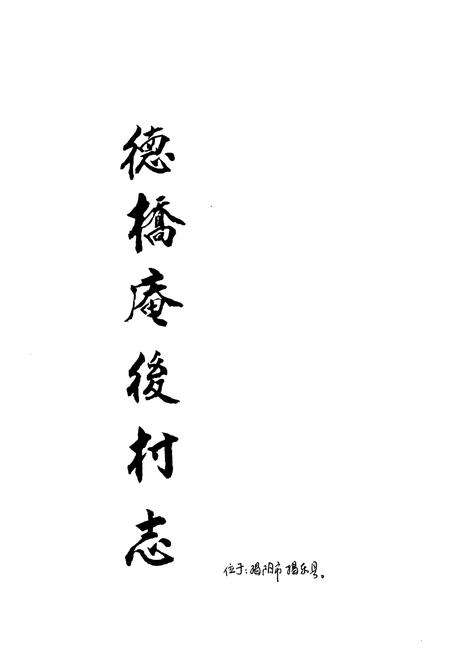 德橋庵後村志
位于:揭阳市揭东县。